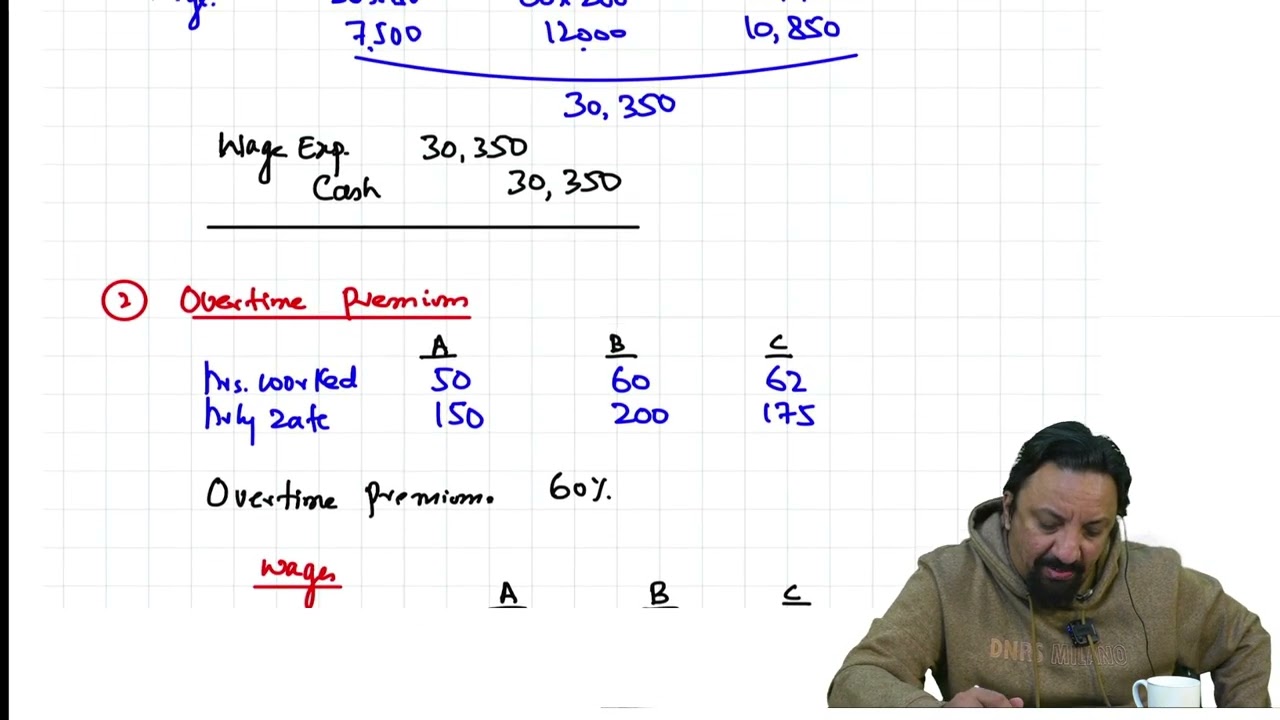 7,500 12,000 10,850
30,350
Wage Exp. 30,350
Cash 30,350
2 Overtime Premium
A B C
hrs. worked 50 60 62
hrly rate 150 200 175
Overtime premium. 60%.
Wages
A B C
DNRS MILANO